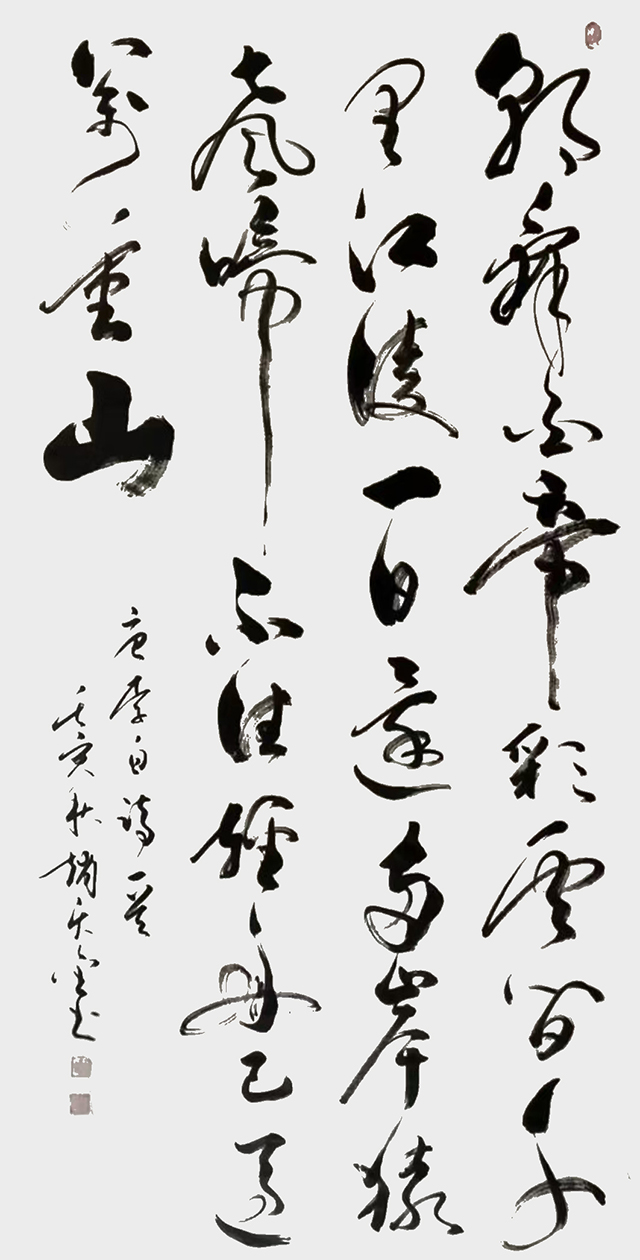 朝辭白帝彩雲間千
里江陵一日還兩岸猿
聲啼不住輕舟已過
萬重山
唐李白詩一首
壬寅秋